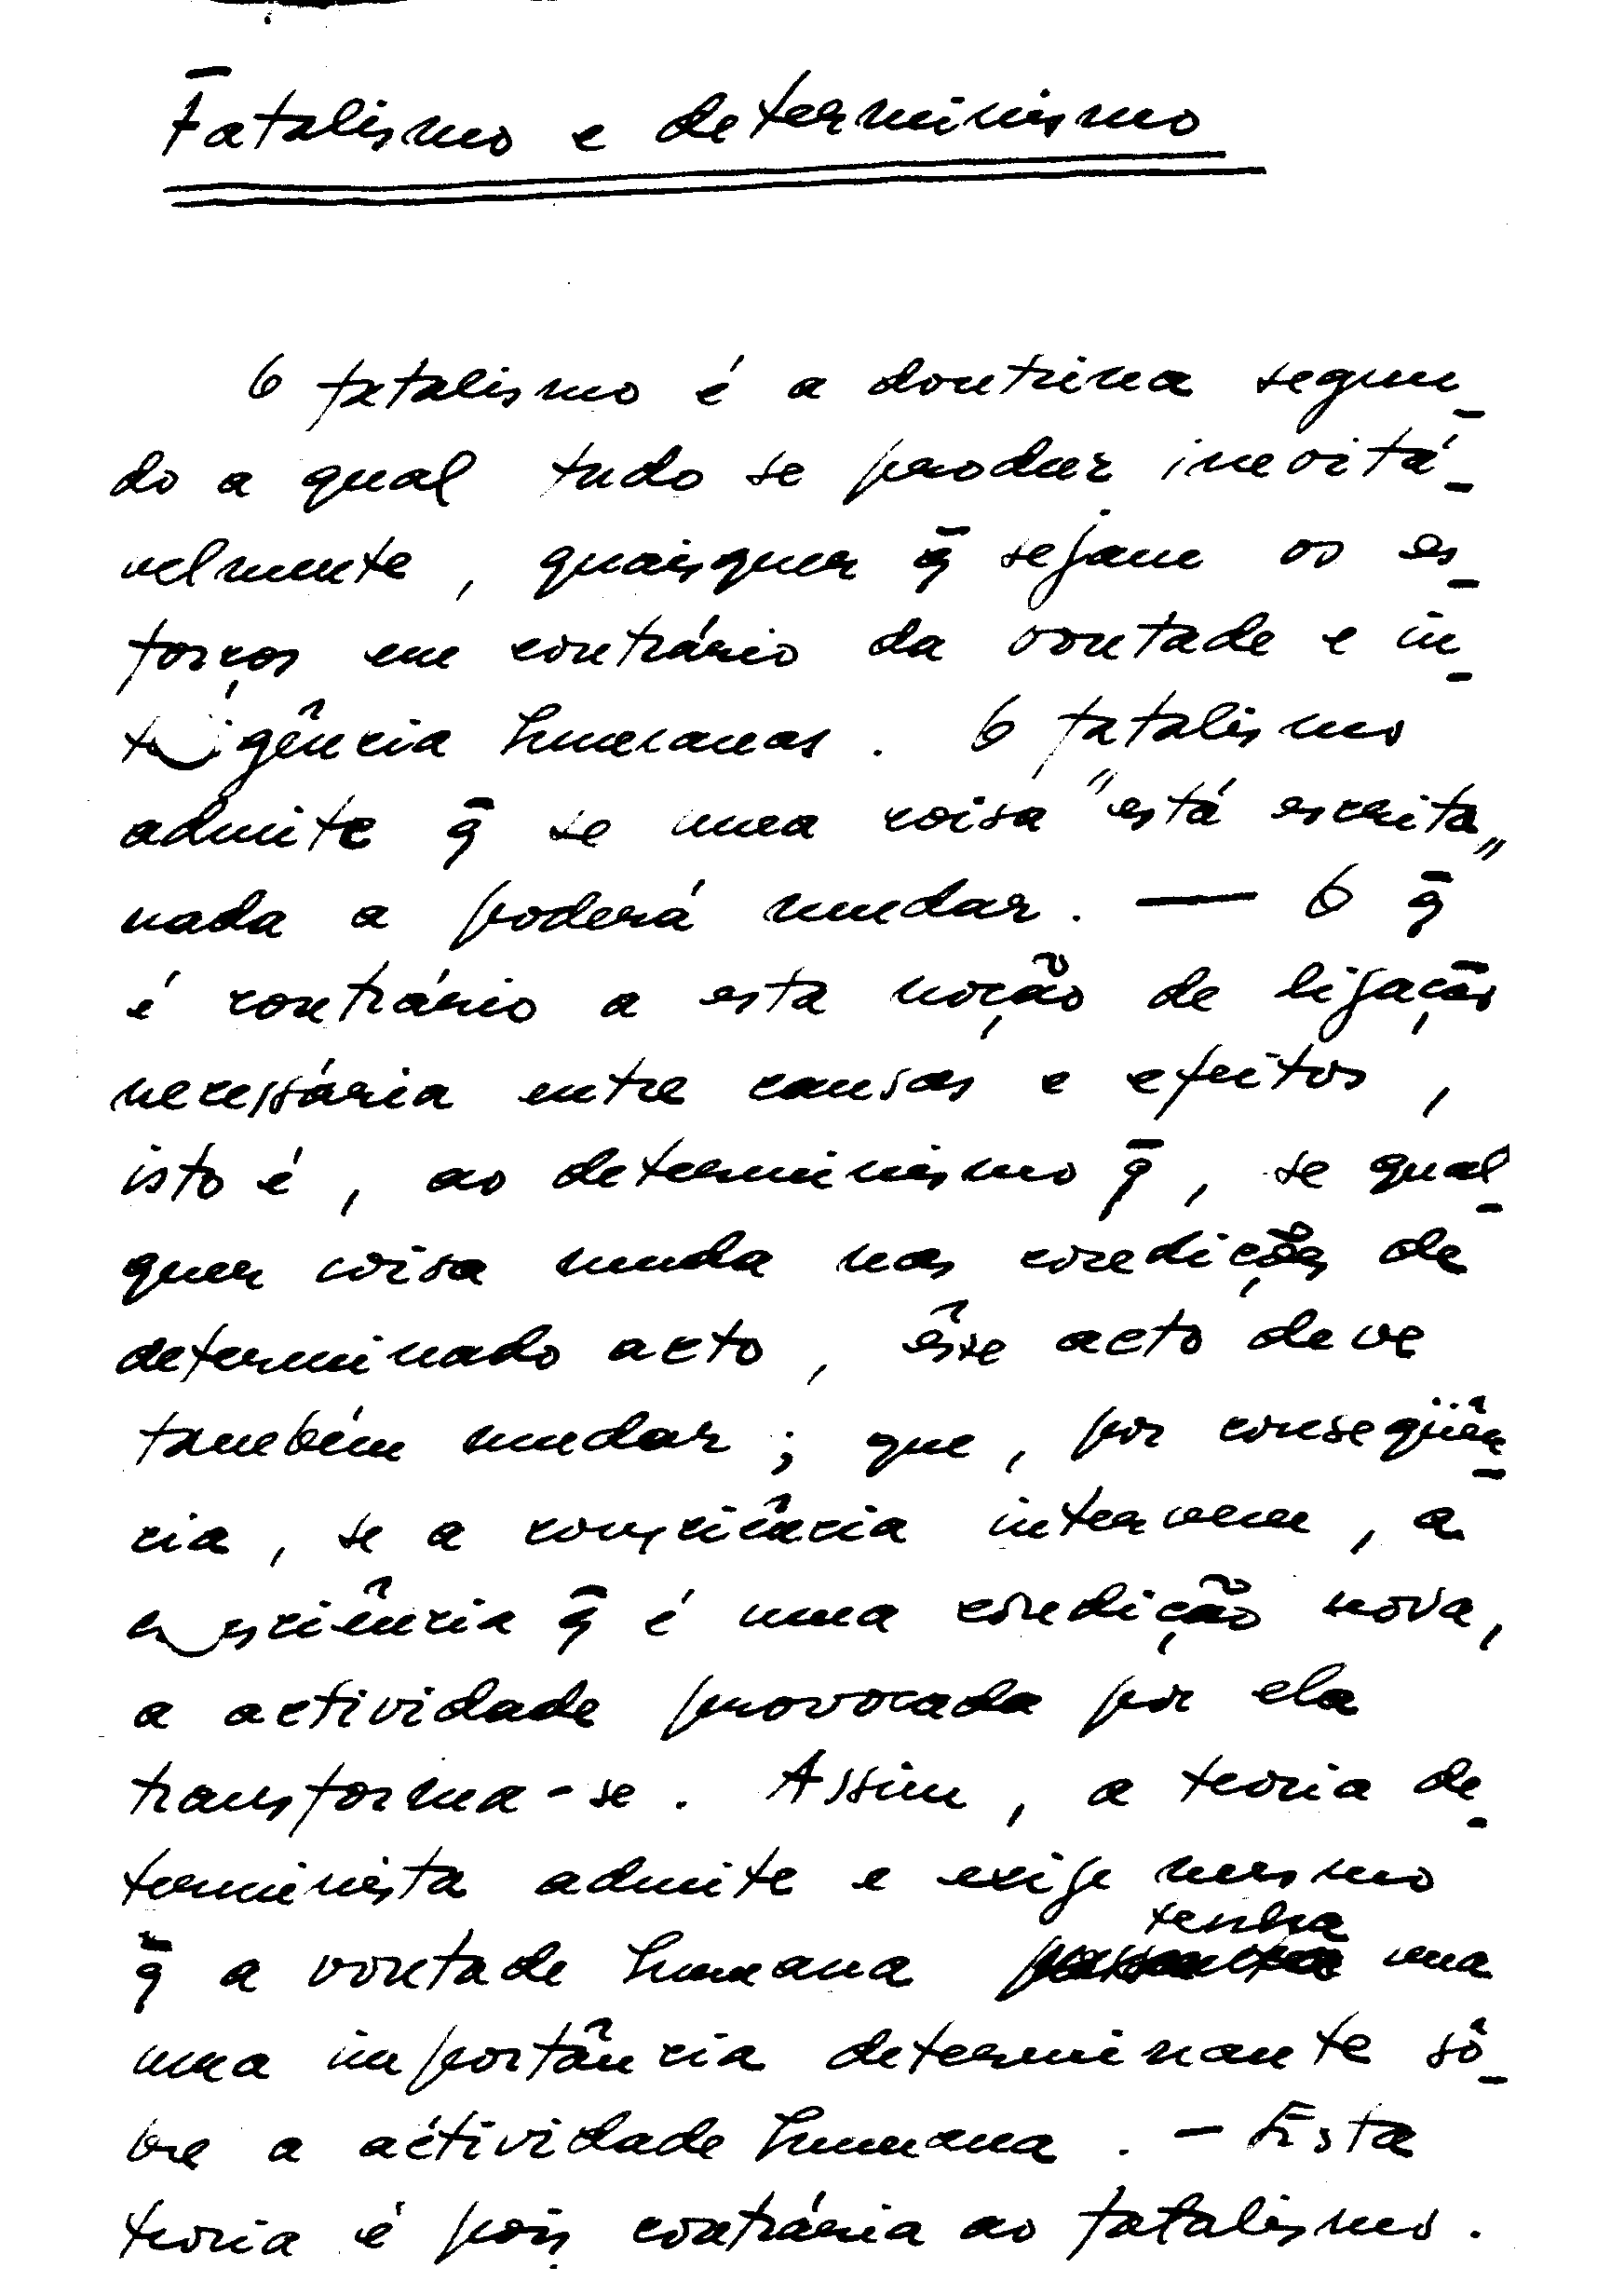 Fatalismo e determinismo
O fatalismo é a doutrina segun-
do a qual tudo se produz inevità-
velmente, quaisquer q̄ sejam os es-
forços em contrário da vontade e in-
teligência humanas. O fatalismo
admite q̄ se uma coisa "está escrita"
nada a poderá mudar. — O q̄
é contrário a esta noção de ligação
necessária entre causas e efeitos,
isto é, ao determinismo q̄, se qual-
quer coisa muda nas condições de
determinado acto, êsse acto deve
também mudar; que, por conseqüên-
cia, se a consciência intervem, a
consciência q̄ é uma condição nova,
a actividade provocada por ela
transforma-se. Assim, a teoria de-
terminista admite e exige mesmo
q̄ a vontade humana tenha uma
uma importância determinante sô-
bre a actividade humana. — Esta
teoria é pois contrária ao fatalismo.